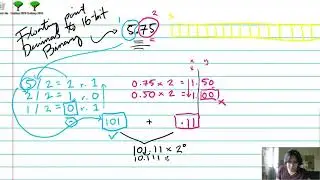 Floating point
Decimal to 16-bit
Binary
1 2
5.75
5 / 2 = 2 r. 1
2 / 2 = 1 r. 0
1 / 2 = 0 r. 1
x y
0.75 x 2 = 1. 50
0.50 x 2 = 1. 00
x
101 + .11
101.11 x 2⁰